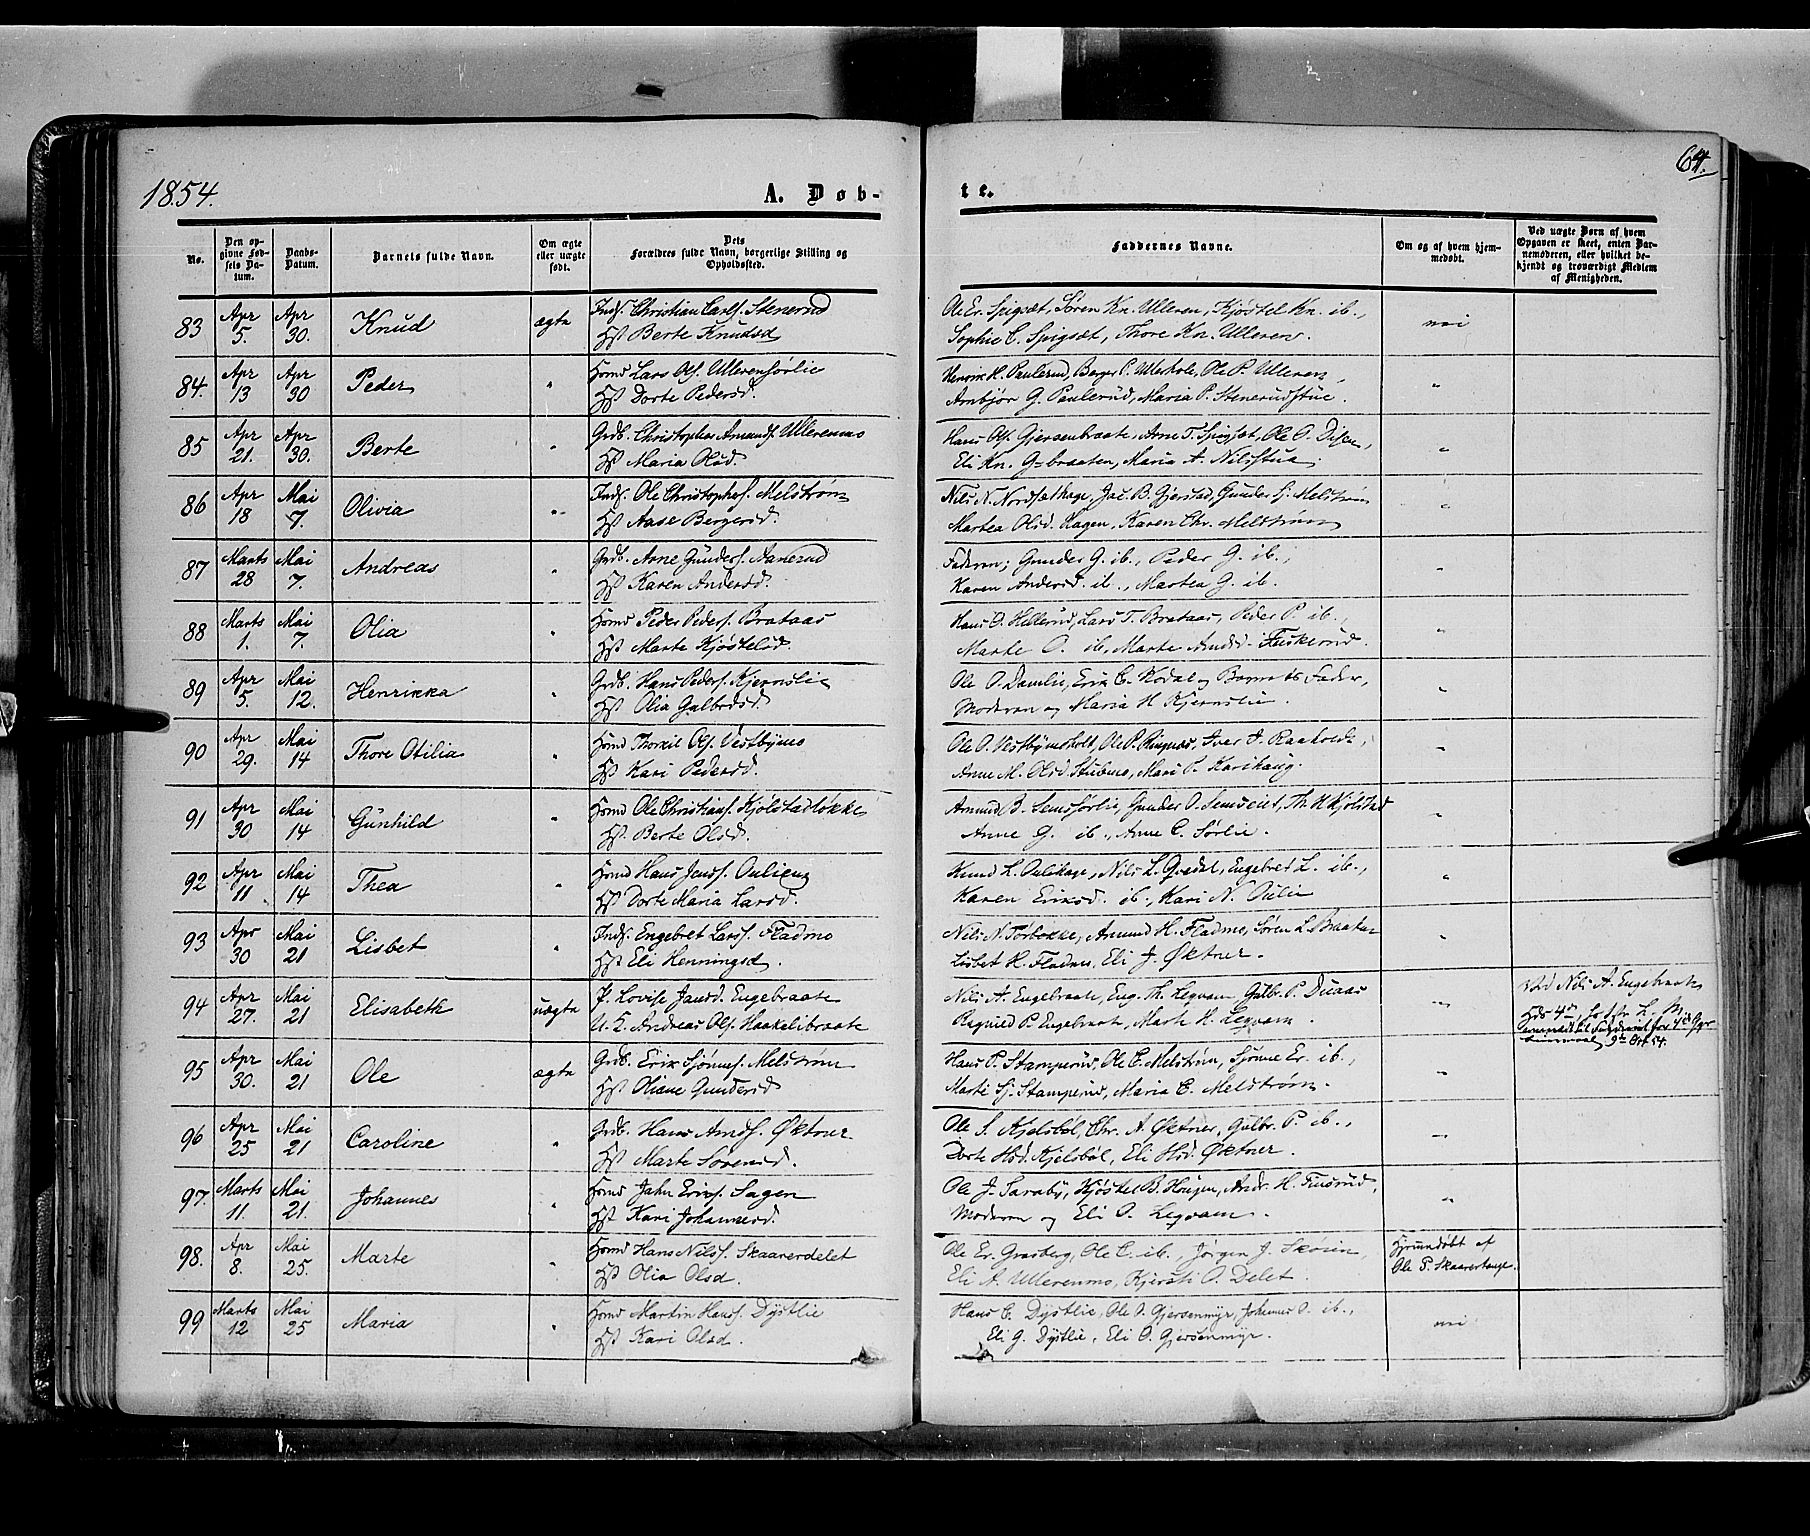 1854.
A. Døb-
te.
64.
No.
Den op-
givne Fød-
sels Da-
tum.
Daabs-
Datum.
Barnets fulde Navn.
Om ægte
eller uægte
født.
Dets
Forældres fulde Navn, borgerlige Stilling og
Opholdssted.
Faddernes Navne.
Om og af hvem hjem-
medøbt.
Ved uægte Børn af hvem
Opgaven er skeet, enten Bar-
nemoderen, eller hvilket be-
kjendt og troværdigt Medlem
af Menigheden.
83 Apr 5. Apr 30. Knud ægte Inds. Christian Carls. Stenerud
Hst Berte Knudsd
Ole Er. Spigset, Søren Kn. Ulleren, Kjøstel Kn. ib.,
Sophie C. Spigset, Thore Kn. Ulleren.
nei
84. Apr 13 Apr 30 Peder " Hsmd Lars Ols. Ullerensørlie
Hst Dorte Pedersd.
Henrik H. Paulerud, Berger P. Ole P. Ulleren,
Arnbjør G. Paulerud, Maria P. Stenerudstue.
"
85 Apr 21. Apr 30. Berte " Grdb. Christopher Amunds. Ullerenmo
Hst Maria Olsd.
Hans Ols. Gjersenbraate, Arne T. Spigset, Ole O. Disen,
Eli Kn. G-braaten, Maria A. Nilsstua.
"
86 Apr 18 Mai 7. Olivia " Inds. Ole Christophers. Melstrøm
Hst Aase Bergersd.
Nils N. Nordsethage, Jac. B. Gjerstad, Gunder Sj. Melstrøm
Martea Olsd. Hagen, Karen Chr. Melstrøm
"
87 Marts 28 Mai 7. Andreas " Grdb. Arne Gunders. Aanerud
Hst Karen Andersd.
Faderen, Gunder G. ib., Peder G. ib.,
Karen Andersd. ib., Martea G. ib.
"
88 Marts 1. Mai 7. Olia " Hsmd Peder Peders. Brataas
Hst Marte Kjøstelsd.
Hans O. Hillerud, Lars T. Brataas, Peder P. ib.,
Marte O. ib., Marte Amdsd. Fiskerud.
"
89 Apr 5. Mai 12. Henrikka " Grdb. Hans Peders. Kjernslie
Hst Olia Gulbrdsd.
Ole O. Damlie, Erik C. Kodal og Barnets Fader,
Moderen og Maria H Kjernslie.
"
90 Apr 29. Mai 14 Thore Otilia " Hsmd Thorkil Ols. Vestbymo
Hst Kari Pedersd.
Ole O. Vestbymsholt, Ole P. Ringnæs, Iver J. Raaholdt,
Anne M. Olsd. Stubmo, Mari P. Karihaug.
"
91 Apr 30 Mai 14 Gunhild " Hsmd Ole Christians. Kjølstadløkke
Hst Berte Olsd.
Amund B. Semsørlie, Gunder O. Semseiet, Th. H. Kjølstad
Anne G. ib., Anne C. Sørlie.
"
92 Apr 11 Mai 14 Thea " Hsmd Hans Jens. Oulien
Hst Dorte Maria Larsd.
Knud L. Oulihage, Nils L. Qvedal, Engebret L. ib.,
Karen Eriksd. ib., Kari N. Oulie
"
93 Apr 30 Mai 21 Lisbet " Inds. Engebret Larss. Fladmo
Hst Eli Henningsd.
Nils N. Torbekke, Amund H. Fladmo, Søren L. Braaten
Lisbet H. Fladmo, Eli J. Øktner.
"
94 Apr 27. Mai 21 Elisabeth uægte P. Lovise Jansd. Engebraate
U. K. Andreas Ols. Haakelibraate
Nils A. Engebraate, Eng. Th. Legvam, Gulbr. P. Duaas
Ragnild P. Engebraate, Marte H. Legvam.
"
Ved Nils A. Engebraate
95 Apr 30. Mai 21 Ole ægte Grdb. Erik Sjønnes. Melstrøm
Hst Oliane Gundersd
Hans P. Stamperud, Ole C. Melstrøm, Sjønne Er. ib.,
Marte Sj. Stamperud, Maria C. Melstrøm.
"
96 Apr 25 Mai 21 Caroline " Grdb. Hans Amds. Øktner
Hst Marte Sørensd.
Ole S. Kjelsbøl, Chr. A. Øktner, Gulbr. P. ib.,
Dorte Hsd. Kjelsbøl, Eli Hsd. Øktner.
"
97. Marts 11. Mai 21. Johannes " Hsmd Jahn Eriks. Sagen
Hst Kari Johannesd.
Ole J. Saraby, Kjøstel B. Hougen, Andr. H. Finsrud,
Moderen og Eli O. Legvam.
"
98. Apr 8. Mai 25. Marte " Hsmd Hans Nilss. Skaarerdelet
Hst Olia Olsd.
Ole Er. Grasberg, Ole C. ib., Jørgen J. Skøien,
Eli A. Ullerenmo, Kjersti O. Delet.
Hjemmdøbt af
Ole P. Skaarerhage.
99 Marts 12 Mai 25 Maria " Hsmd Martin Hans. Dystlie
Hst Kari Olsd.
Hans C. Dystlie, Ole O. Gjersenmyr, Johannes O. ib.,
Eli G. Dystlie, Eli O. Gjersenmyr.
nei